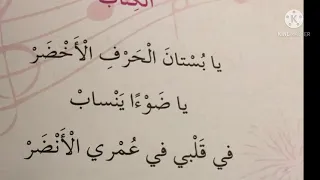 الكِتابُ
يا بُسْتانَ الْحَرْفِ الْأَخْضَرْ
يا ضَوْءًا يَنْسابْ
في قَلْبي في عُمْري الْأَنْضَرْ